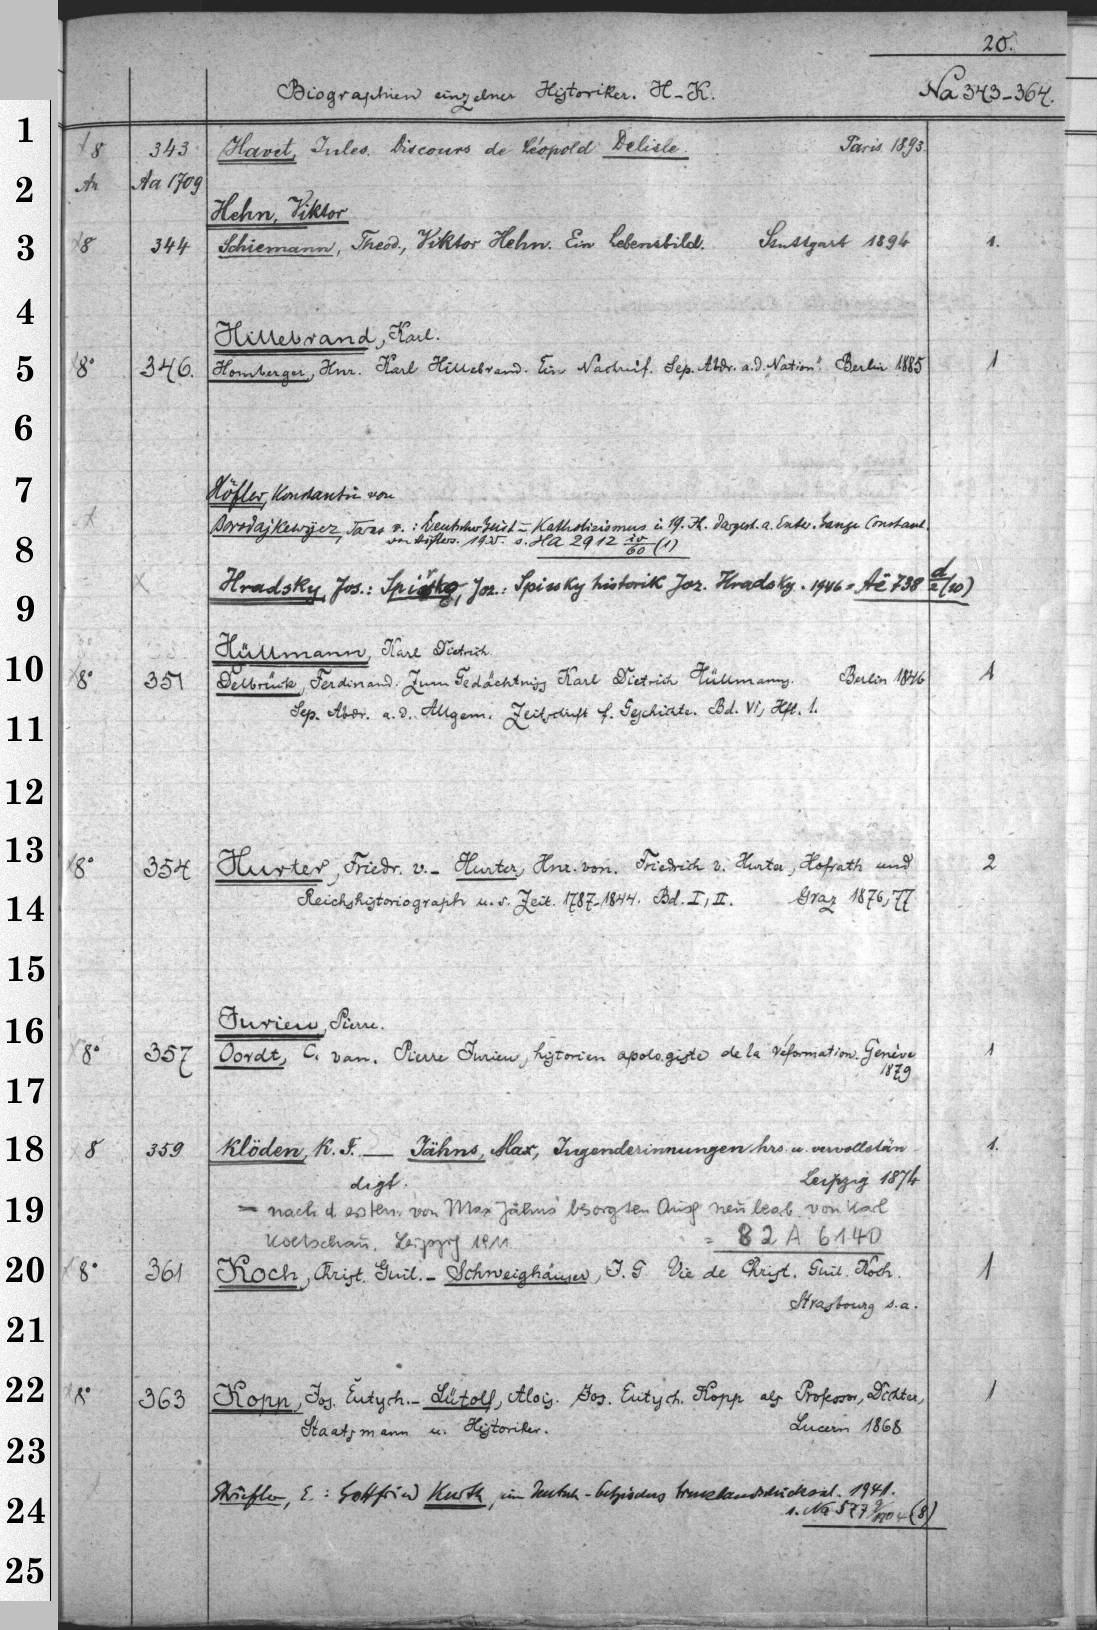 20.
Biographien einzelner Historiker. H-K. Na 343-364.
1
8 343 Havet, Jules. Discours de Léopold Delisle. Paris 1893.
2
An Aa 1709
Hehn, Viktor
3
8 344 Schiemann, Theod., Viktor Hehn. Ein Lebensbild. Stuttgart 1894 1.
4
Hillebrand, Karl.
5
8° 346. Homberger, Hnr. Karl Hillebrand. Ein Nachruf. Sep. Abdr. a. d. Nation" Berlin 1885 1
6
7
Höfler, Konstantin von
Borodajkewycz, Taras v.: Deutscher Geist u. Katholizismus i. 19. Jh. dargest. a. Entw. Gange Constant.
8
von Höflers. 1935. s. Ha 2912 (1)
Hradsky, Jos.: Joz.: Spissky historik Joz. Hradsky. 1946 = Aë 738 d/2 (10)
9
Hüllmann, Karl Dietrich
10
8° 351 Delbrück, Ferdinand. Zum Gedächtniss Karl Dietrich Hüllmanns. Berlin 1846 1
Sep. Abdr. a. d. Allgem. Zeitschrift f. Geschichte. Bd. VI, Hft. 1.
11
12
13
8° 354 Hurter, Friedr. v. - Hurter, Hnr. von. Friedrich v. Hurter, Hofrath und 2
14
Reichshistoriograph u. s. Zeit. 1787-1844. Bd. I, II. Graz 1876,77
15
16
Jurieu, Pierre.
8° 357 Oordt, C. van. Pierre Jurieu, historien apologiste de la réformation. Genève 1
1879
17
18
8 359 Klöden, K. F. — Jähns, Max, Jugenderinnungen hrs. u. vervollstän 1.
digt. Leipzig 1874
19
= nach d. ersten von Max Jähns besorgten Ausg neu bearb. von Karl
Koetschau. Leipzig 1911 = 82 A 6140
20
8° 361 Koch, Christ. Guil. - Schweighäuser, J. G. Vie de Christ. Guil. Koch. 1
Strasbourg s.a.
21
22
8° 363 Kopp, Jos. Eutych. - Lütolf, Alois. Jos. Eutych. Kopp als Professor, Dichter, 1
Staatsmann u. Historiker. Lucern 1868
23
E.: Gottfried Kurth, ein deutsch-belgisches Grenzlandschicksal. 1941.
24
s. Na 577 (8)
25